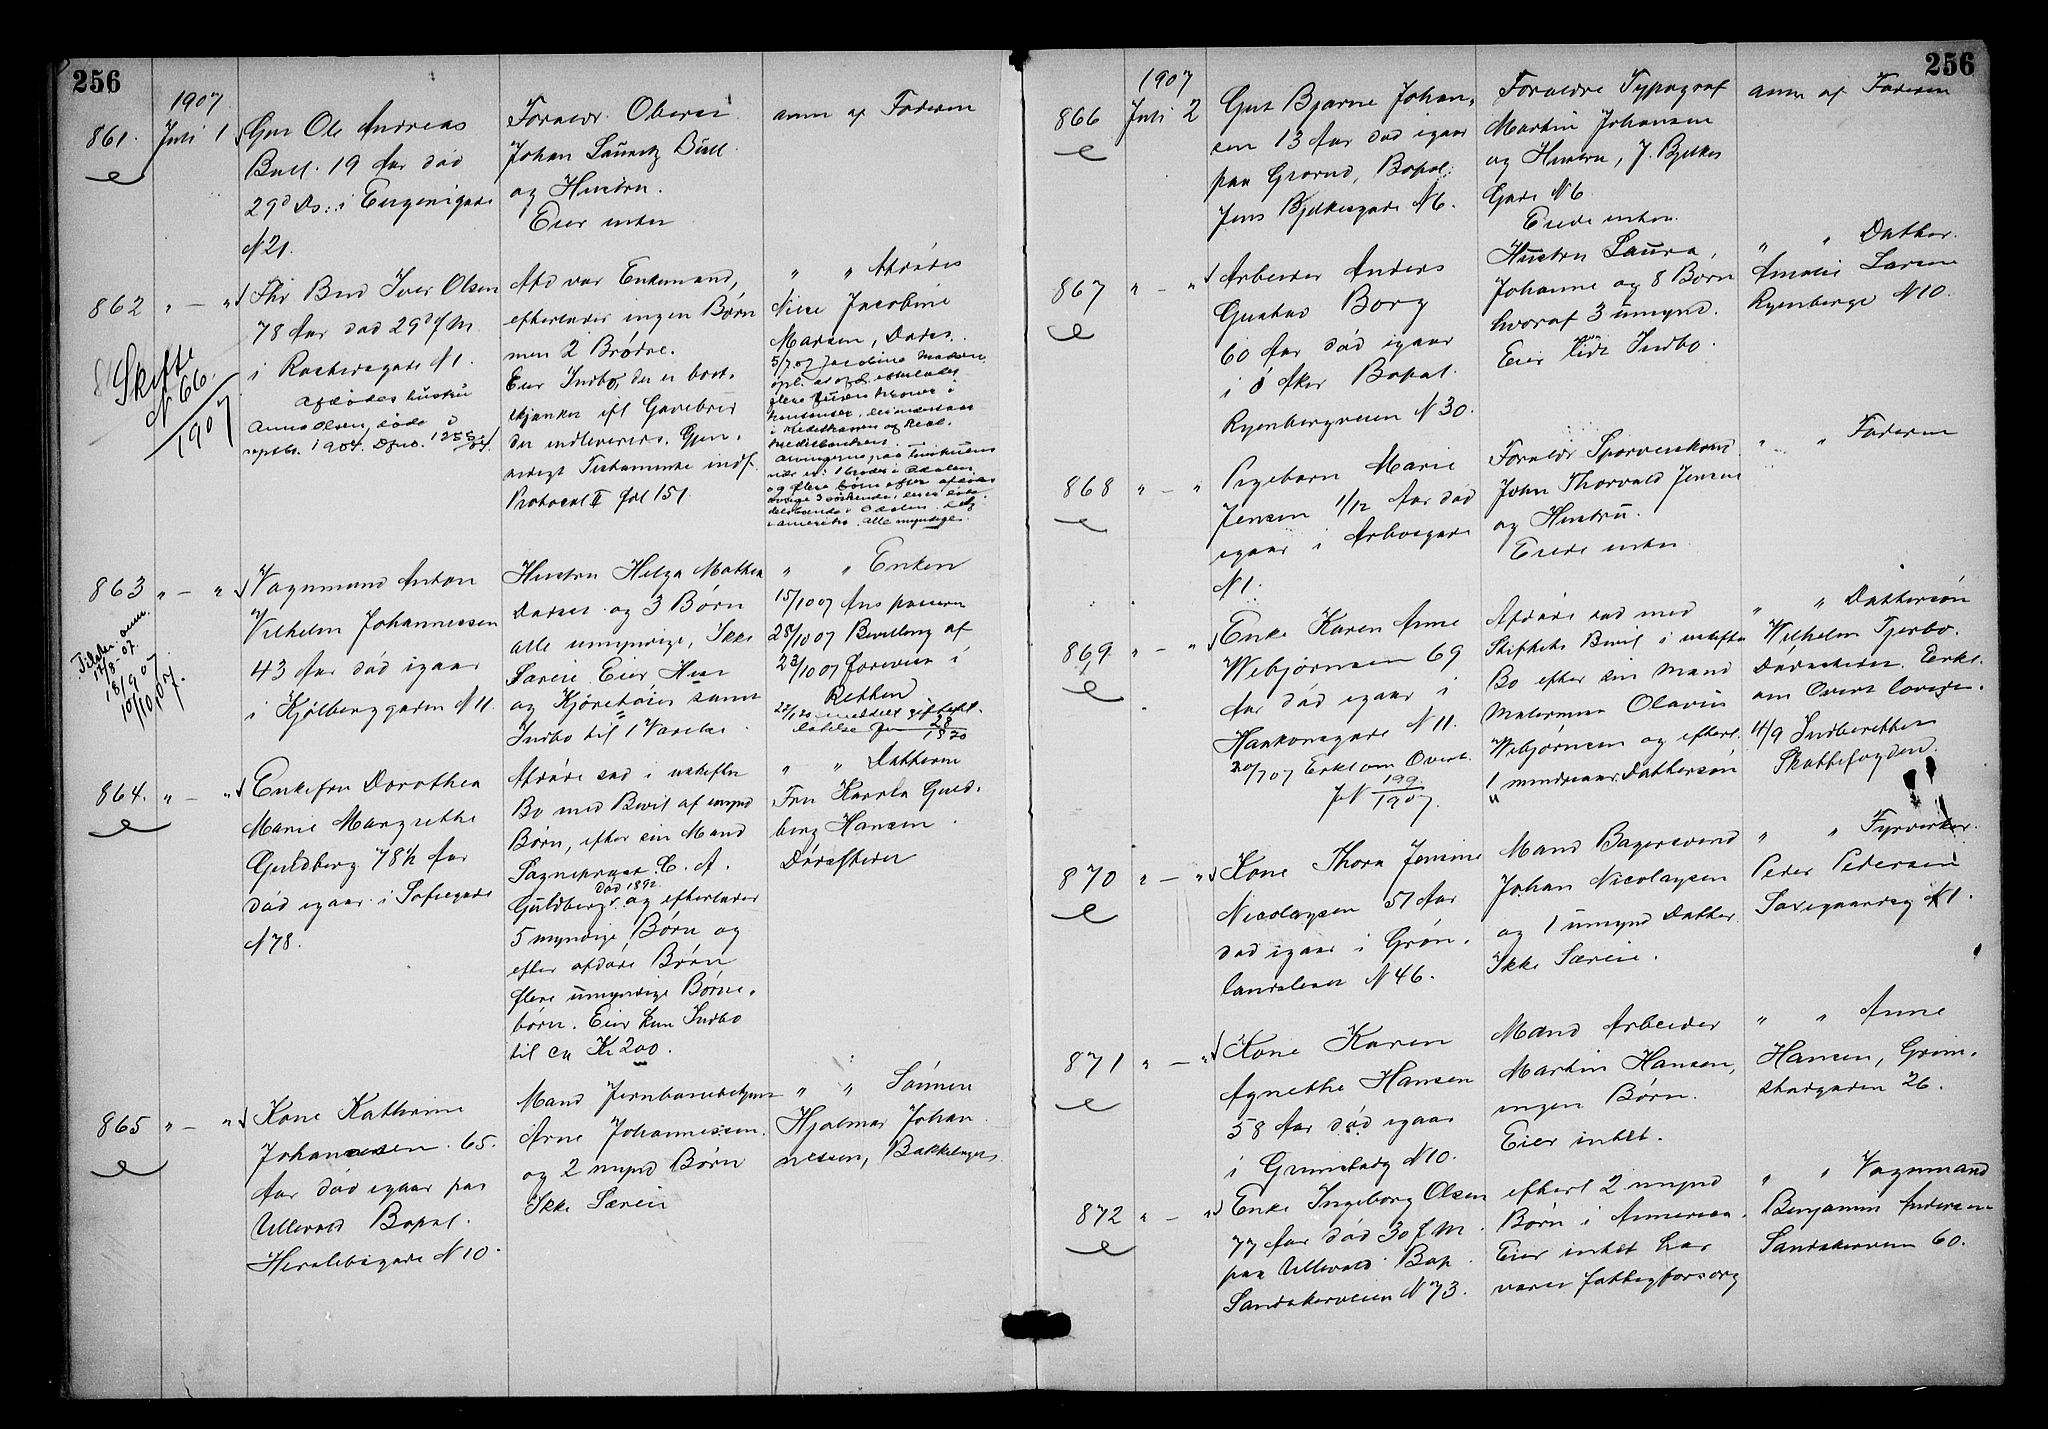 256
1907
861. Juli 1
Gut Ole Andreas
Bull. 19 Aar død
29d Ds: i Eugenigade
N 21.
Forældr.
Johan Bull
og Hustru.
Eier intet
anm af Faderen
862 " — "
Iver Olsen
78 Aar død 29d f M.
i N 1.
Afdødes hustru
Anna Olsen, døde
septbr. 1904.
Skifte
N 66.
1907
Afd var Enkemand,
efterlader ingen Børn
men 2 Brødre.
Eier Indbo, der er bort-
skjænket ifl Gavebrev
der indleveres. Gjen-
sidigt Testamente indf.
Protocol II fol 151
" " Afdødes
Niece Jacobine
5/7 07 Jacobine
alle myndige.
863 " — "
Vognmand Anton
Vilhelm Johannessen
43 Aar død igaar
i Kjølberggaden N 11.
10/10 07.
Hustru Helga Mathea
og 3 Børn
alle umyndige, Ikke
Særeie Eier Hus
og Kjøretøier samt
Indbo til 1 Værelse.
" " Enken
15/10 07
28/10 07 Bevilling af
23/10 07 Foreviist i
Retten
864. " — "
Enkefru Dorothea
Marie Margrethe
Guldberg 78 1/2 Aar
død igaar i Sofiegade
N 78.
Afdøde sad i uskiftet
Bo med Bevil af mynd
Børn, efter sin Mand
Sognepræst C. A.
død 1892.
Guldberg og efterlader
5 myndige Børn og
efter afdøde Børn
flere umyndige Børne-
børn. Eier kun Indbo
til ca Kr 200.
" " Datteren
Fru Guld-
berg Hansen.
865 " — "
Kone Kathrine
Johannesen. 65.
Aar død igaar paa
Ullevold Bopæl.
Herslebsgade N 10.
Mand
Arne Johannessen.
og 2 mynd Børn
Ikke Særeie
" " Sønnen
Hjalmar Johan
nessen,
256
1907
866 Juli 2
Gut Bjarne Johan-
sen 13 Aar død igaar
paa Grorud, Bopæl:
Jens Bjelkesgade N 6.
Forældre Typograf
Martin Johansen
og Hustru, J. Bjelkes
Gade N 6
Eiede intet.
anm af Faderen
867 " — "
Arbeider Anders
Gustav Borg
60 Aar død igaar
i Ø Aker Bopæl.
Ryenbergveien N 30.
Hustru Laura
Johanne og 8 Børn
hvoraf 3 umynd.
Eier lidt Indbo.
" " Datter
Amalie Larsen
Ryenberge N 10.
868 " — "
Pigebarn Marie
Jensen 1/12 Aar død
igaar i
N 1.
Forældr
John Thorvald Jensen
og Hustru.
Eiede intet
" " Faderen
869 " — "
Enke Karen Anne
Webjørnsen 69
Aar død igaar i
Haakonsgade N 11.
20/7 07 Erkl om Overt.
199
1907.
Afdøde sad med
Skiftets Bevil i uskiftet
Bo efter sin Mand
Malermester Olavus
Webjørnsen og efterl.
1 mindreaar. Dattersøn
" " Dattersøn
Wilhelm
Erkl.
om Overt loves.
4/9 Indberettes
Skattefogden.
870 " — "
Kone Thora Jensine
Nicolaysen 51 Aar
død igaar i Grøn-
landsleret N 46.
Mand Bagersvend
Johan Nicolaysen
og 1 umynd Datter
Ikke Særeie.
" " Fyrverker
Peder Pedersen
Saxegaardsg N 1.
871 " — "
Kone Karen
Agnethe Hansen
58 Aar død igaar
i Grimstadg N 10.
Mand Arbeider
Martin Hansen,
ingen Børn.
Eier intet.
" " Anne
Hansen, Grim-
stadgaden 26.
872 " — "
Enke Ingeborg Olsen
77 Aar død 30 f M
paa Ullevold Bop.
Sandakerveien N 73.
efterl 2 mynd
Børn i Amerika.
Eier intet har
været fattigforsørg
" " Vognmand
Benjamin Andersen
Sandakerveien 60.